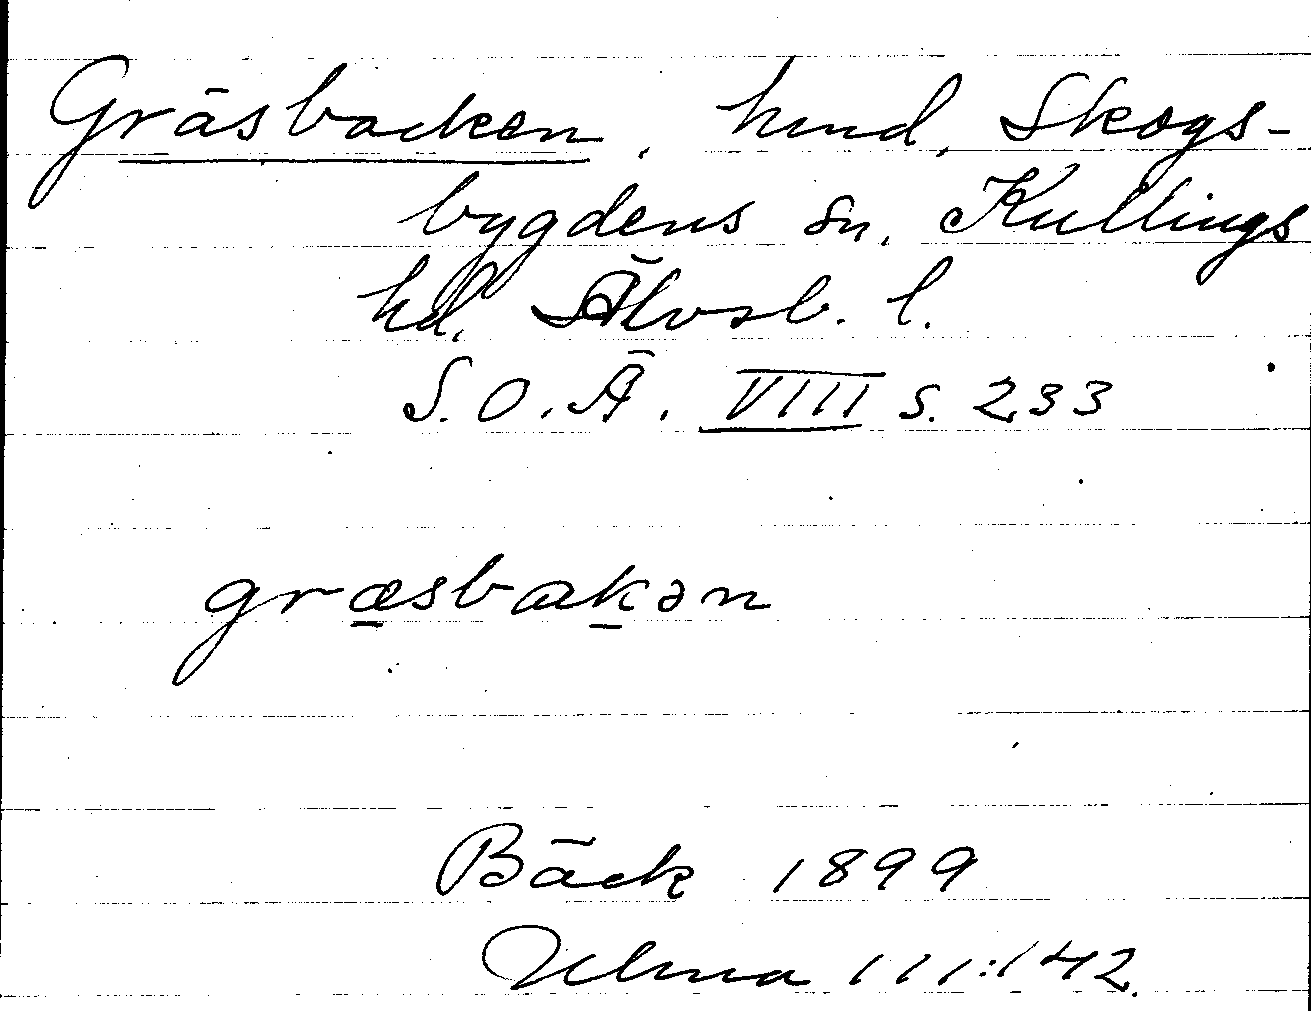 Gräsbacken, hmd, Skogs-
bygdens sn, Kullings
hd. Älvsb. l.
S.O.Ä. VIII s. 233
græsbakən
Bäck 1899
111:142